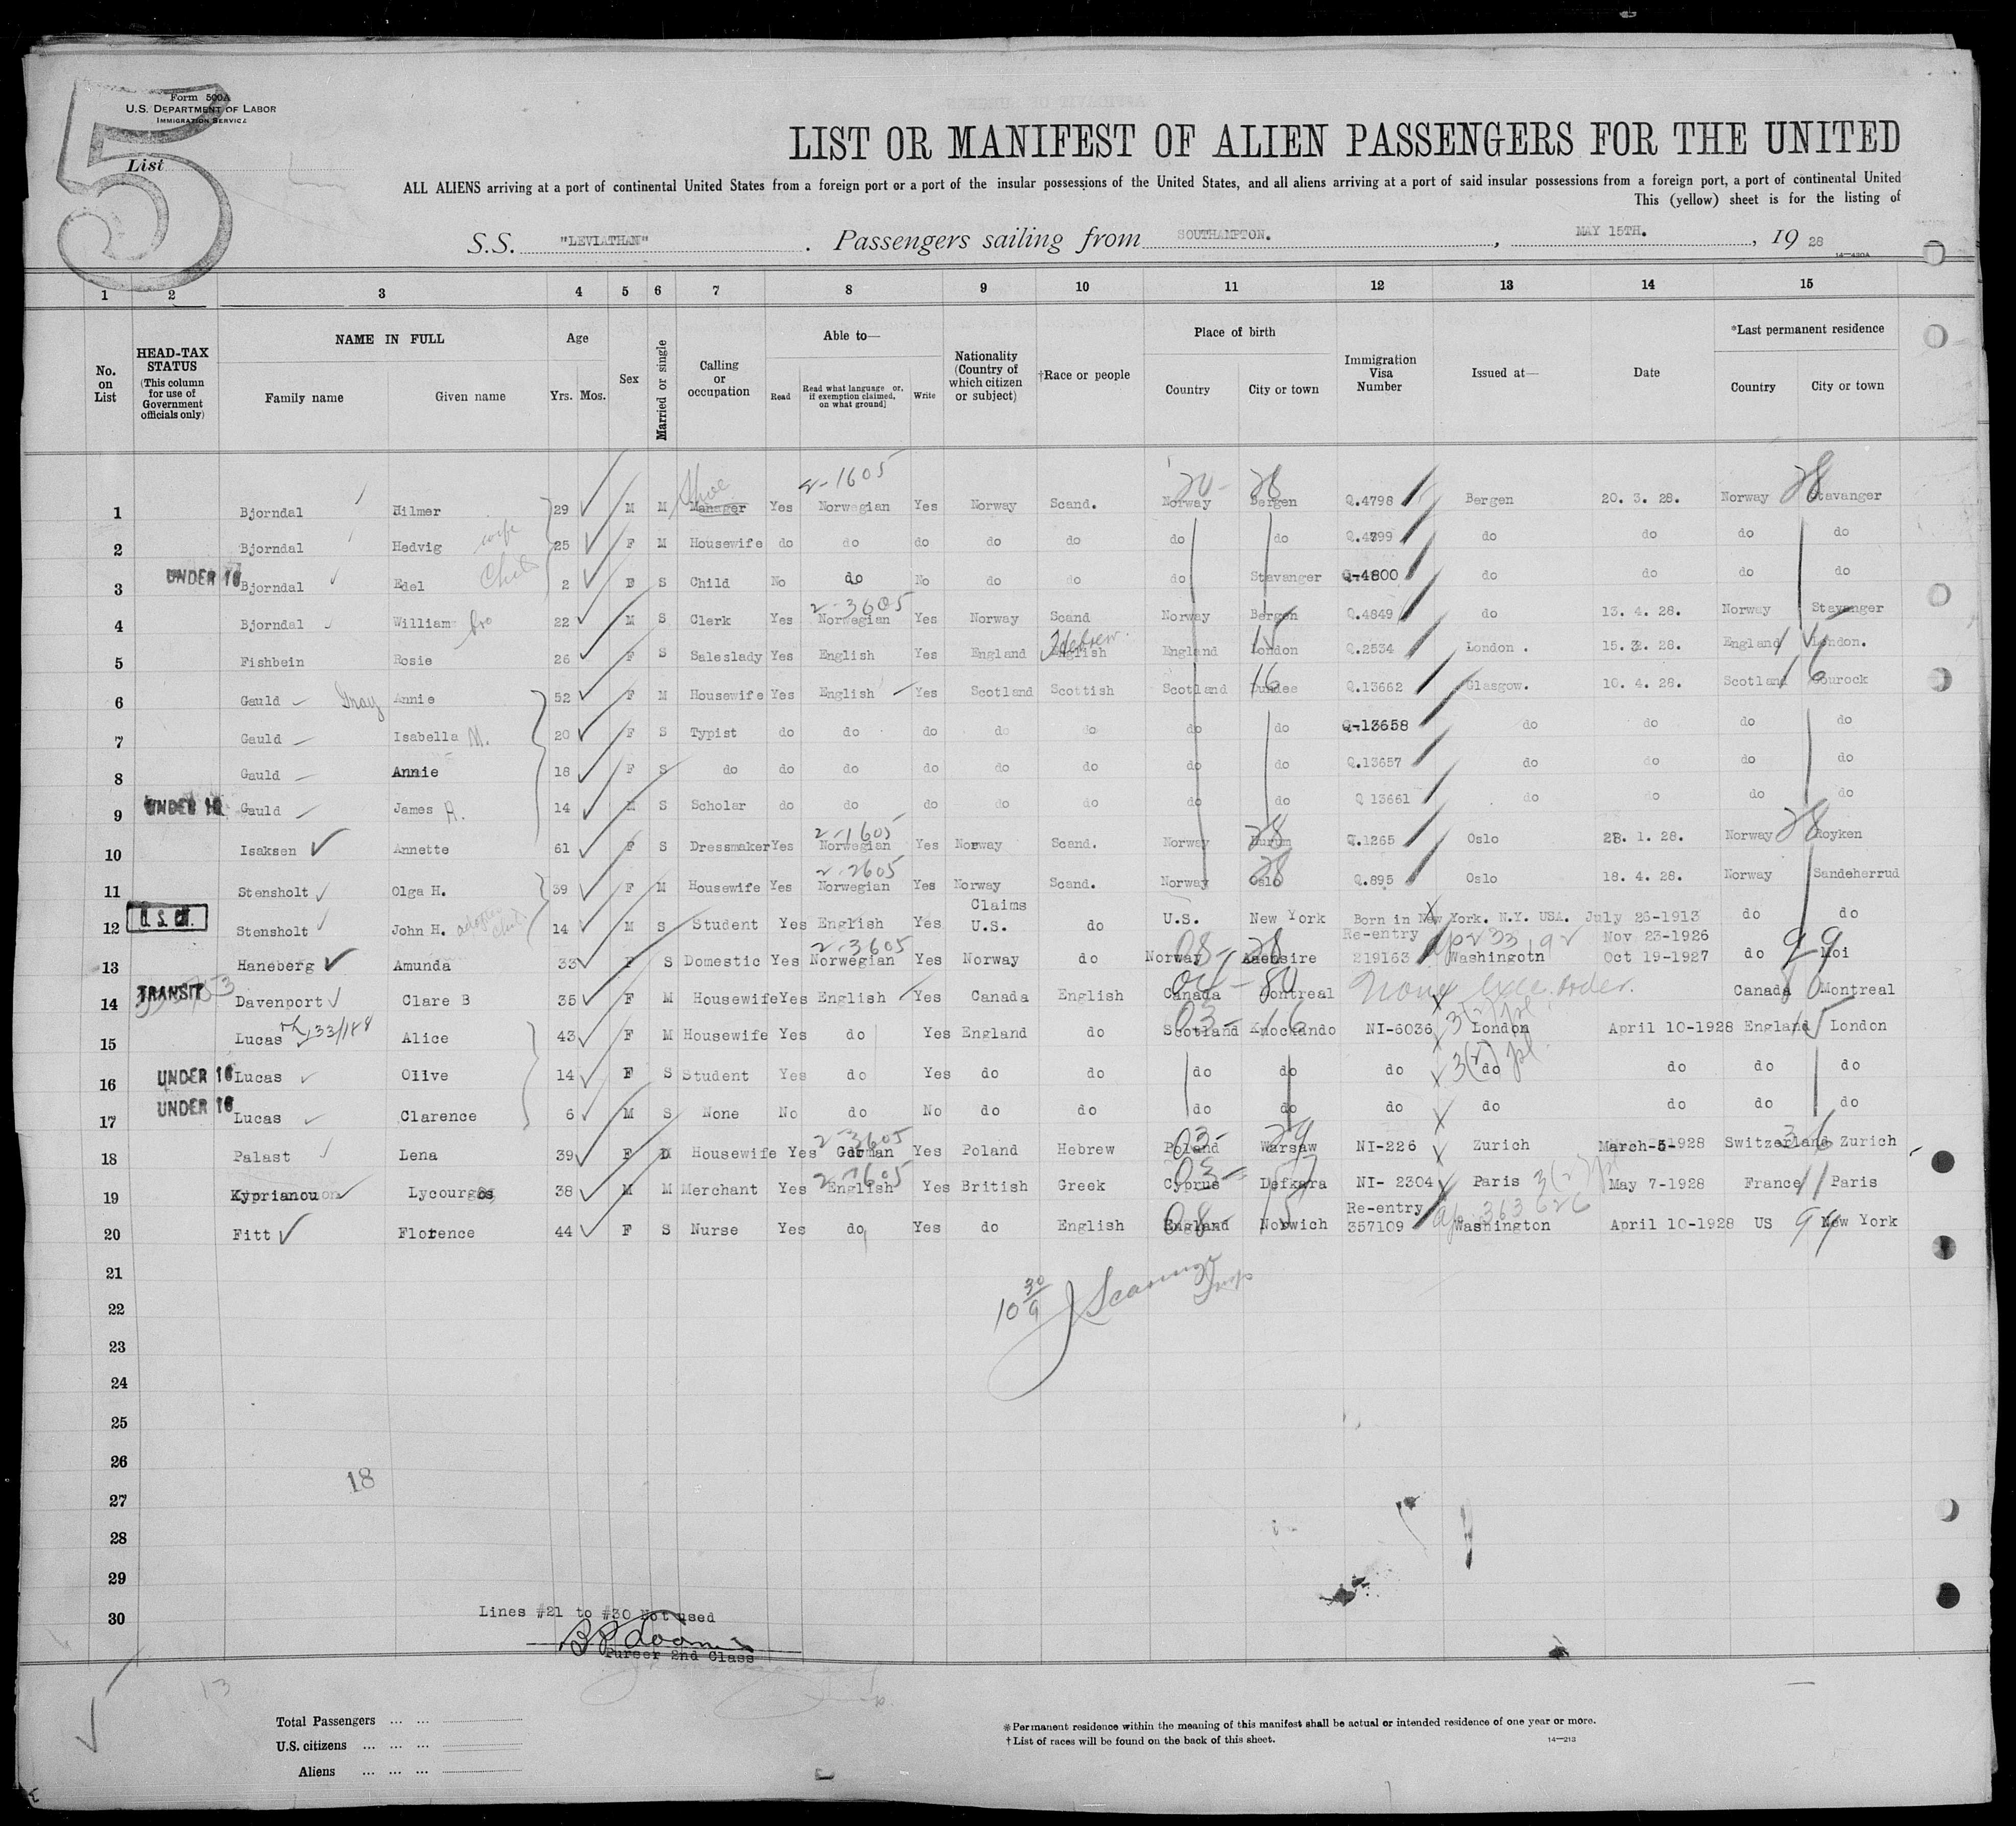 5
Form 500A
U.S. DEPARTMENT OF LABOR
IMMIGRATION SERVICE
List
LIST OR MANIFEST OF ALIEN PASSENGERS FOR THE UNITED
ALL ALIENS arriving at a port of continental United States from a foreign port or a port of the insular possessions of the United States, and all aliens arriving at a port of said insular possessions from a foreign port, a port of continental United
This (yellow) sheet is for the listing of
S.S. "LEVIATHAN" . Passengers sailing from SOUTHAMPTON. , MAY 15TH. , 19 28
14—430A
1 2 3 4 5 6 7 8 9 10 11 12 13 14 15
No. on List
HEAD-TAX STATUS (This column for use of Government officials only)
NAME IN FULL
Family name Given name
Age
Yrs. Mos.
Sex
Married or single
Calling or occupation
Able to—
Read
Read what language or, if exemption claimed, on what ground]
Write
Nationality (Country of which citizen or subject)
†Race or people
Place of birth
Country City or town
Immigration Visa Number
Issued at—
Date
*Last permanent residence
Country City or town
2-1605
Shoe 20- 28 28
1 Bjorndal Hilmer 29 M M Manager Yes Norwegian Yes Norway Scand. Norway Bergen Q.4798 Bergen 20. 3. 28. Norway Stavanger
2 Bjorndal Hedvig wife 25 F M Housewife do do do do do do do Q.4799 do do do do
3 UNDER 16 Bjorndal Edel Child 2 F S Child No do No do do do Stavanger Q-4800 do do do do
2-3605
4 Bjorndal William bro 22 M S Clerk Yes Norwegian Yes Norway Scand Norway Bergen Q.4849 do 13. 4. 28. Norway Stavanger
Hebrew. 15
5 Fishbein Rosie 26 F S Saleslady Yes English Yes England English England London Q.2534 London . 15. 3. 28. England London.
16 16
6 Gauld Gray Annie 52 F M Housewife Yes English Yes Scotland Scottish Scotland Dundee Q.13662 Glasgow. 10. 4. 28. Scotland Gourock
7 Gauld Isabella M. 20 F S Typist do do do do do do do Q-13658 do do do do
8 Gauld Annie 18 F S do do do do do do do do Q.13657 do do do do
9 UNDER 16 Gauld James A. 14 M S Scholar do do do do do do do Q 13661 do do do do
2-1605 28 28
10 Isaksen Annette 61 F S Dressmaker Yes Norwegian Yes Norway Scand. Norway Q.1265 Oslo 28. 1. 28. Norway Royken
2-2605 28
11 Stensholt Olga H. 39 F M Housewife Yes Norwegian Yes Norway Scand. Norway Oslo Q.895 Oslo 18. 4. 28. Norway Sandeherrud
12 U. S. Ct. Stensholt John H. adopted child 14 M S Student Yes English Yes Claims U.S. do U.S. New York Born in New York. N.Y. USA. July 26-1913 do do
2-3605 08- 28 Re-entry Nov 23-1926 99
13 Haneberg Amunda 33 F S Domestic Yes Norwegian Yes Norway do Norway 219163 Washingotn Oct 19-1927 do Moi
04- 80
14 TRANSIT Davenport Clare B 35 F M Housewife Yes English Yes Canada English Canada Montreal None Exec. order. Canada Montreal
03- 16
15 Lucas Alice 43 F M Housewife Yes do Yes England do Scotland Knockando NI-6036 London April 10-1928 England London
16 UNDER 16 Lucas Olive 14 F S Student Yes do Yes do do do do do 3(2) do do do do
17 UNDER 16 Lucas Clarence 6 M S None No do No do do do do do do do do do
2-3605 03- 29 36
18 Palast Lena 39 F D Housewife Yes German Yes Poland Hebrew Poland Warsaw NI-226 Zurich March-5-1928 Switzerland Zurich
2-1605 03- 77 11
19 Kyprianou Lycourgos 38 M M Merchant Yes English Yes British Greek Cyprus Defkara NI- 2304 Paris 3(2) May 7-1928 France Paris
08- 15 Re-entry 363626 99
20 Fitt Florence 44 F S Nurse Yes do Yes do English England Norwich 357109 Washington April 10-1928 US New York
21
22
23
24
25
26
18
27
28
29
30
Lines #21 to #30 Not used
Purser 2nd Class
13
Total Passengers ... ...
U.S. citizens ... ... ...
Aliens ... ... ...
*Permanent residence within the meaning of this manifest shall be actual or intended residence of one year or more.
†List of races will be found on the back of this sheet.
14—213